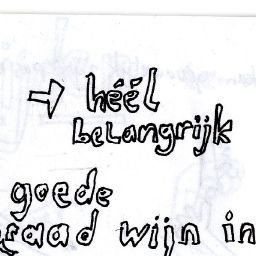 → héél
belangrijk
goede
raad wijn in